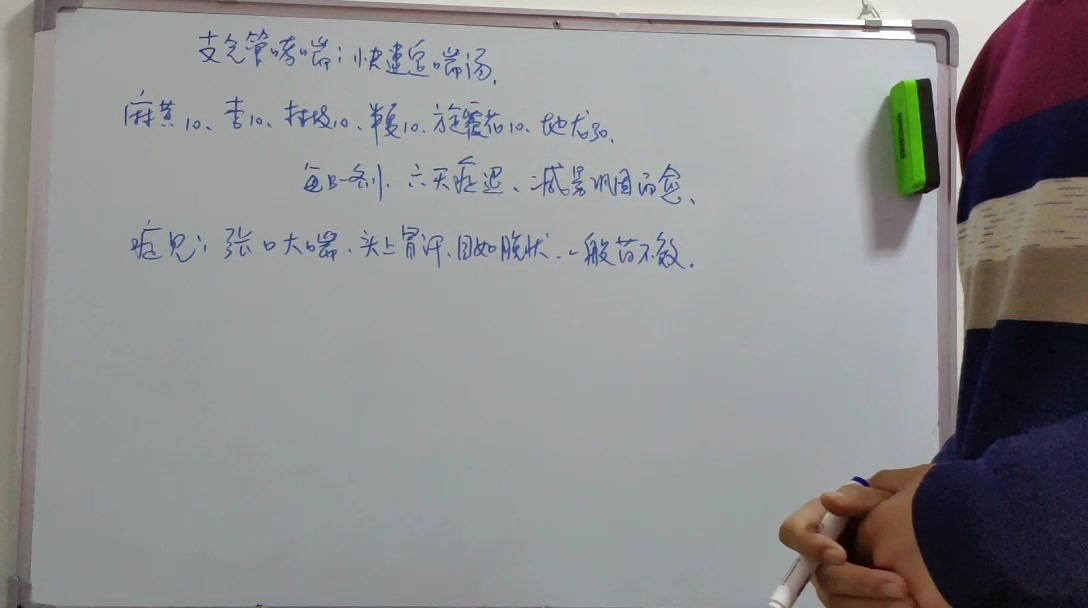 支气管哮喘:快速定喘汤.
麻黄10、杏10、枝10、半夏10、旋覆花10、地龙30.
每日一剂、六天症退、减量巩固而愈、
症见:张口大喘、头上冒汗、目如脱状、一般药不效.